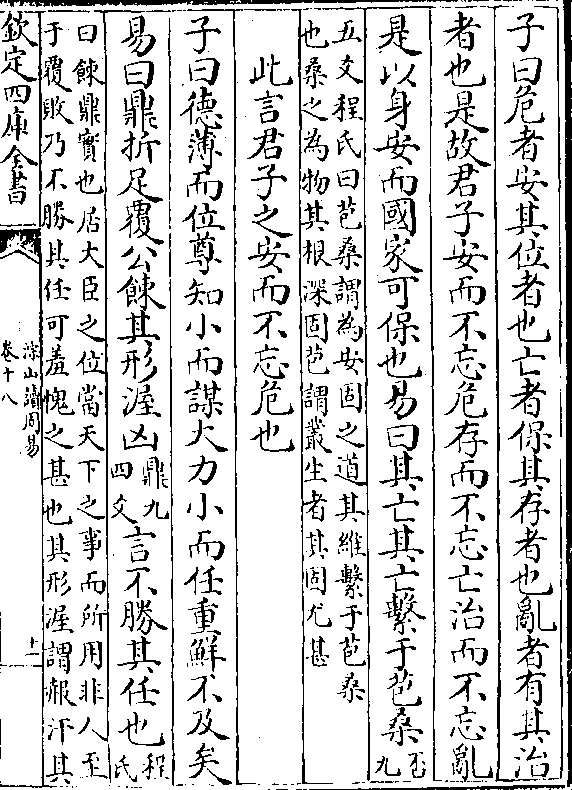 子曰危者安其位者也亡者保其存者也亂者有其治
者也是故君子安而不忘危存而不忘亡治而不忘亂
是以身安而國家可保也易曰其亡其亡繫于苞桑否九
五爻程氏曰苞桑謂為安固之道其維繫于苞桑
也桑之為物其根深固苞謂叢生者其固尤甚
此言君子之安而不忘危也
子曰德薄而位尊知小而謀大力小而任重鮮不及矣
易曰鼎折足覆公餗其形渥凶鼎九四爻言不勝其任也程氏
曰餗鼎實也居大臣之位當天下之事而所用非人至
于覆敗乃不勝其任可羞愧之甚也其形渥謂赧汗其
欽定四庫全書
淙山讀周易
卷十八
十一